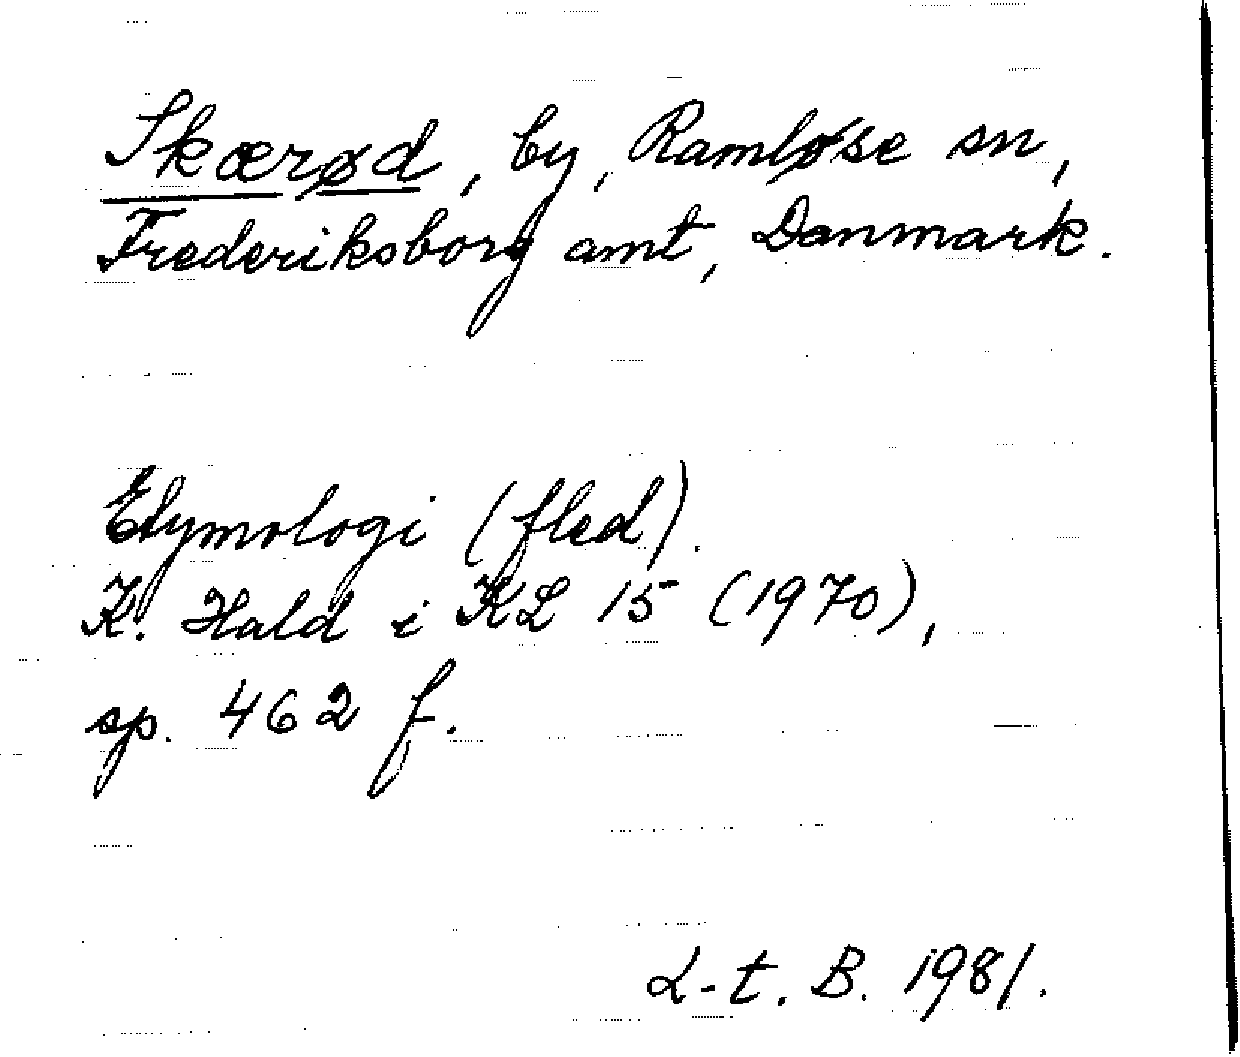 Skærød, by, Ramløse sn,
Frederiksborg amt, Danmark.
Etymologi (fled).
K. Hald i KL 15 (1970),
sp. 462 f.
L-t. B. 1981.